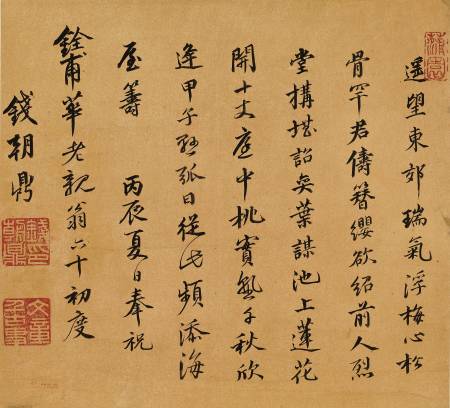 遙望東郊瑞氣浮梅心松
骨罕君儔簪纓欲紹前人烈
堂搆堪詒奕葉謀池上蓮花
開十丈庭中桃實熟千秋欣
逢甲子懸弧日從此頻添海
屋籌 丙辰夏日奉祝
銓甫華老親翁六十初度
錢朝鼎